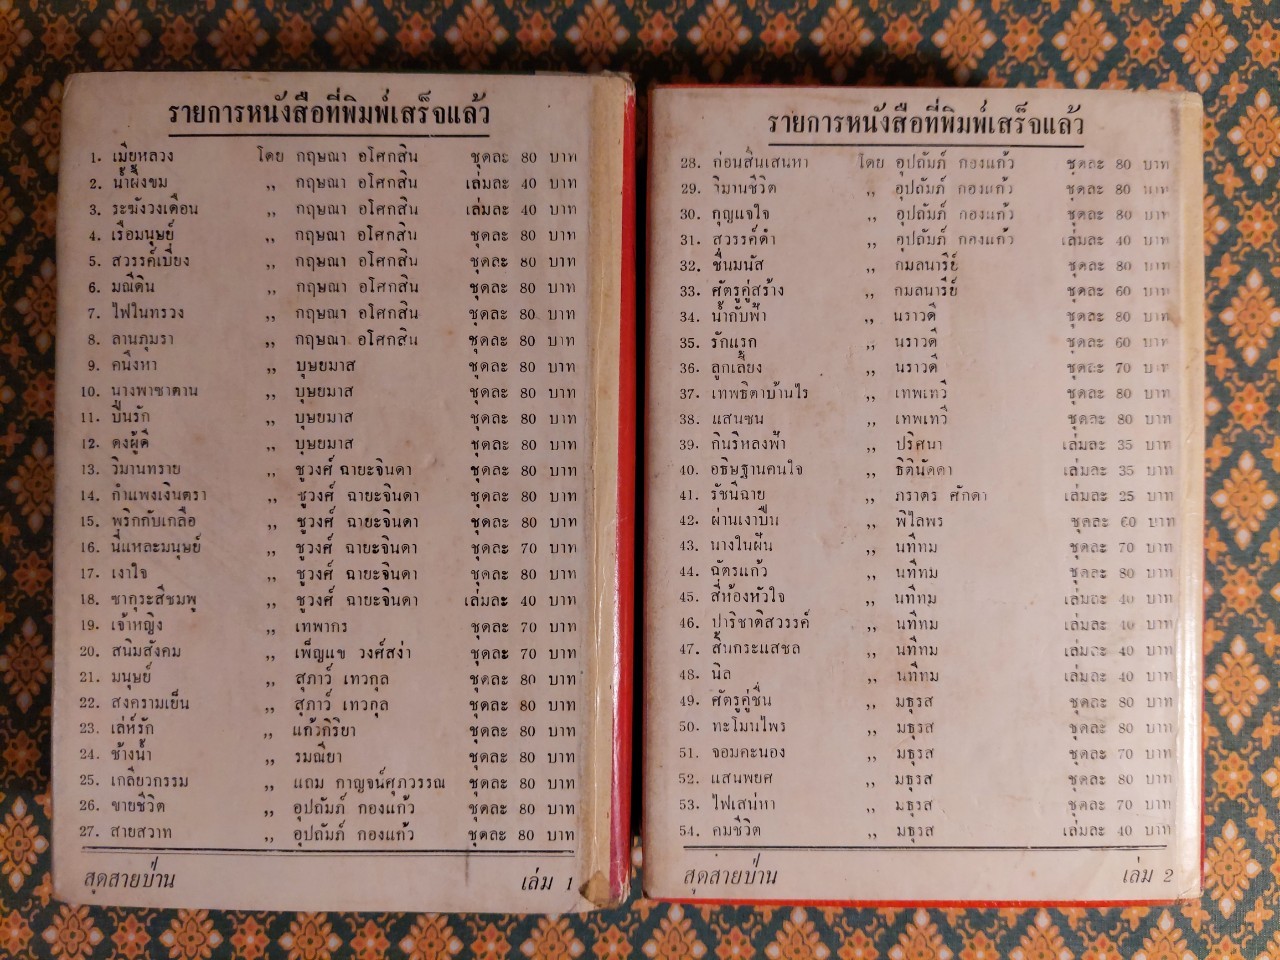 รายการหนังสือที่พิมพ์เสร็จแล้ว
1. เมียหลวง โดย กฤษณา อโศกสิน ชุดละ 80 บาท
2. น้ำผึ้งขม ,, กฤษณา อโศกสิน เล่มละ 40 บาท
3. ระฆังวงเดือน ,, กฤษณา อโศกสิน เล่มละ 40 บาท
4. เรือมนุษย์ ,, กฤษณา อโศกสิน ชุดละ 80 บาท
5. สวรรค์เบี่ยง ,, กฤษณา อโศกสิน ชุดละ 80 บาท
6. มณีดิน ,, กฤษณา อโศกสิน ชุดละ 80 บาท
7. ไฟในทรวง ,, กฤษณา อโศกสิน ชุดละ 80 บาท
8. ลานภุมรา ,, กฤษณา อโศกสิน ชุดละ 80 บาท
9. คนึงหา ,, บุษยมาส ชุดละ 80 บาท
10. นางพาซาตาน ,, บุษยมาส ชุดละ 80 บาท
11. ปืนรัก ,, บุษยมาส ชุดละ 80 บาท
12. ดงผู้ดี ,, บุษยมาส ชุดละ 80 บาท
13. วิมานทราย ,, ชูวงศ์ ฉายะจินดา ชุดละ 80 บาท
14. กำแพงเงินตรา ,, ชูวงศ์ ฉายะจินดา ชุดละ 80 บาท
15. พริกกับเกลือ ,, ชูวงศ์ ฉายะจินดา ชุดละ 80 บาท
16. นี่แหละมนุษย์ ,, ชูวงศ์ ฉายะจินดา ชุดละ 70 บาท
17. เงาใจ ,, ชูวงศ์ ฉายะจินดา ชุดละ 80 บาท
18. ซากุระสีชมพู ,, ชูวงศ์ ฉายะจินดา เล่มละ 40 บาท
19. เจ้าหญิง ,, เทพากร ชุดละ 70 บาท
20. สนิมสังคม ,, เพ็ญแข วงศ์สง่า ชุดละ 70 บาท
21. มนุษย์ ,, สุภาว์ เทวกุล ชุดละ 80 บาท
22. สงครามเย็น ,, สุภาว์ เทวกุล ชุดละ 80 บาท
23. เล่ห์รัก ,, แก้วกิริยา ชุดละ 80 บาท
24. ช้างน้ำ ,, รมณียา ชุดละ 80 บาท
25. เกลียวกรรม ,, แถม กาญจน์ศุภวรรณ ชุดละ 80 บาท
26. ขายชีวิต ,, อุปถัมภ์ กองแก้ว ชุดละ 80 บาท
27. สายสวาท ,, อุปถัมภ์ กองแก้ว ชุดละ 80 บาท
สุดสายป่าน เล่ม 1
รายการหนังสือที่พิมพ์เสร็จแล้ว
28. ก่อนสิ้นเสน่หา โดย อุปถัมภ์ กองแก้ว ชุดละ 80 บาท
29. วิมานชีวิต ,, อุปถัมภ์ กองแก้ว ชุดละ 80 บาท
30. กุญแจใจ ,, อุปถัมภ์ กองแก้ว ชุดละ 80 บาท
31. สวรรค์ดำ ,, อุปถัมภ์ กองแก้ว เล่มละ 40 บาท
32. ชื่นมนัส ,, กมลนารีย์ ชุดละ 80 บาท
33. ศัตรูคู่สร้าง ,, กมลนารีย์ ชุดละ 60 บาท
34. น้ำกับฟ้า ,, นราวดี ชุดละ 80 บาท
35. รักแรก ,, นราวดี ชุดละ 60 บาท
36. ลูกเลี้ยง ,, นราวดี ชุดละ 70 บาท
37. เทพธิดาบ้านไร่ ,, เทพเทวี ชุดละ 80 บาท
38. แสนซน ,, เทพเทวี ชุดละ 80 บาท
39. กินรีหลงฟ้า ,, ปริศนา เล่มละ 35 บาท
40. อธิษฐานคนใจ ,, ธิตินัดดา เล่มละ 35 บาท
41. รัชนีฉาย ,, ภราดร ศักดา เล่มละ 25 บาท
42. ผ่านเงาปืน ,, พิไลพร ชุดละ 60 บาท
43. นางในฝัน ,, นทีทม ชุดละ 70 บาท
44. ฉัตรแก้ว ,, นทีทม ชุดละ 80 บาท
45. สี่ห้องหัวใจ ,, นทีทม เล่มละ 40 บาท
46. ปาริชาติสวรรค์ ,, นทีทม เล่มละ 40 บาท
47. สิ้นกระแสชล ,, นทีทม เล่มละ 40 บาท
48. นิล ,, นทีทม เล่มละ 40 บาท
49. ศัตรูคู่ชื่น ,, มธุรส ชุดละ 80 บาท
50. ทะโมนไพร ,, มธุรส ชุดละ 80 บาท
51. จอมคะนอง ,, มธุรส ชุดละ 70 บาท
52. แสนพยศ ,, มธุรส ชุดละ 80 บาท
53. ไฟเสน่หา ,, มธุรส ชุดละ 70 บาท
54. คมชีวิต ,, มธุรส เล่มละ 40 บาท
สุดสายป่าน เล่ม 2